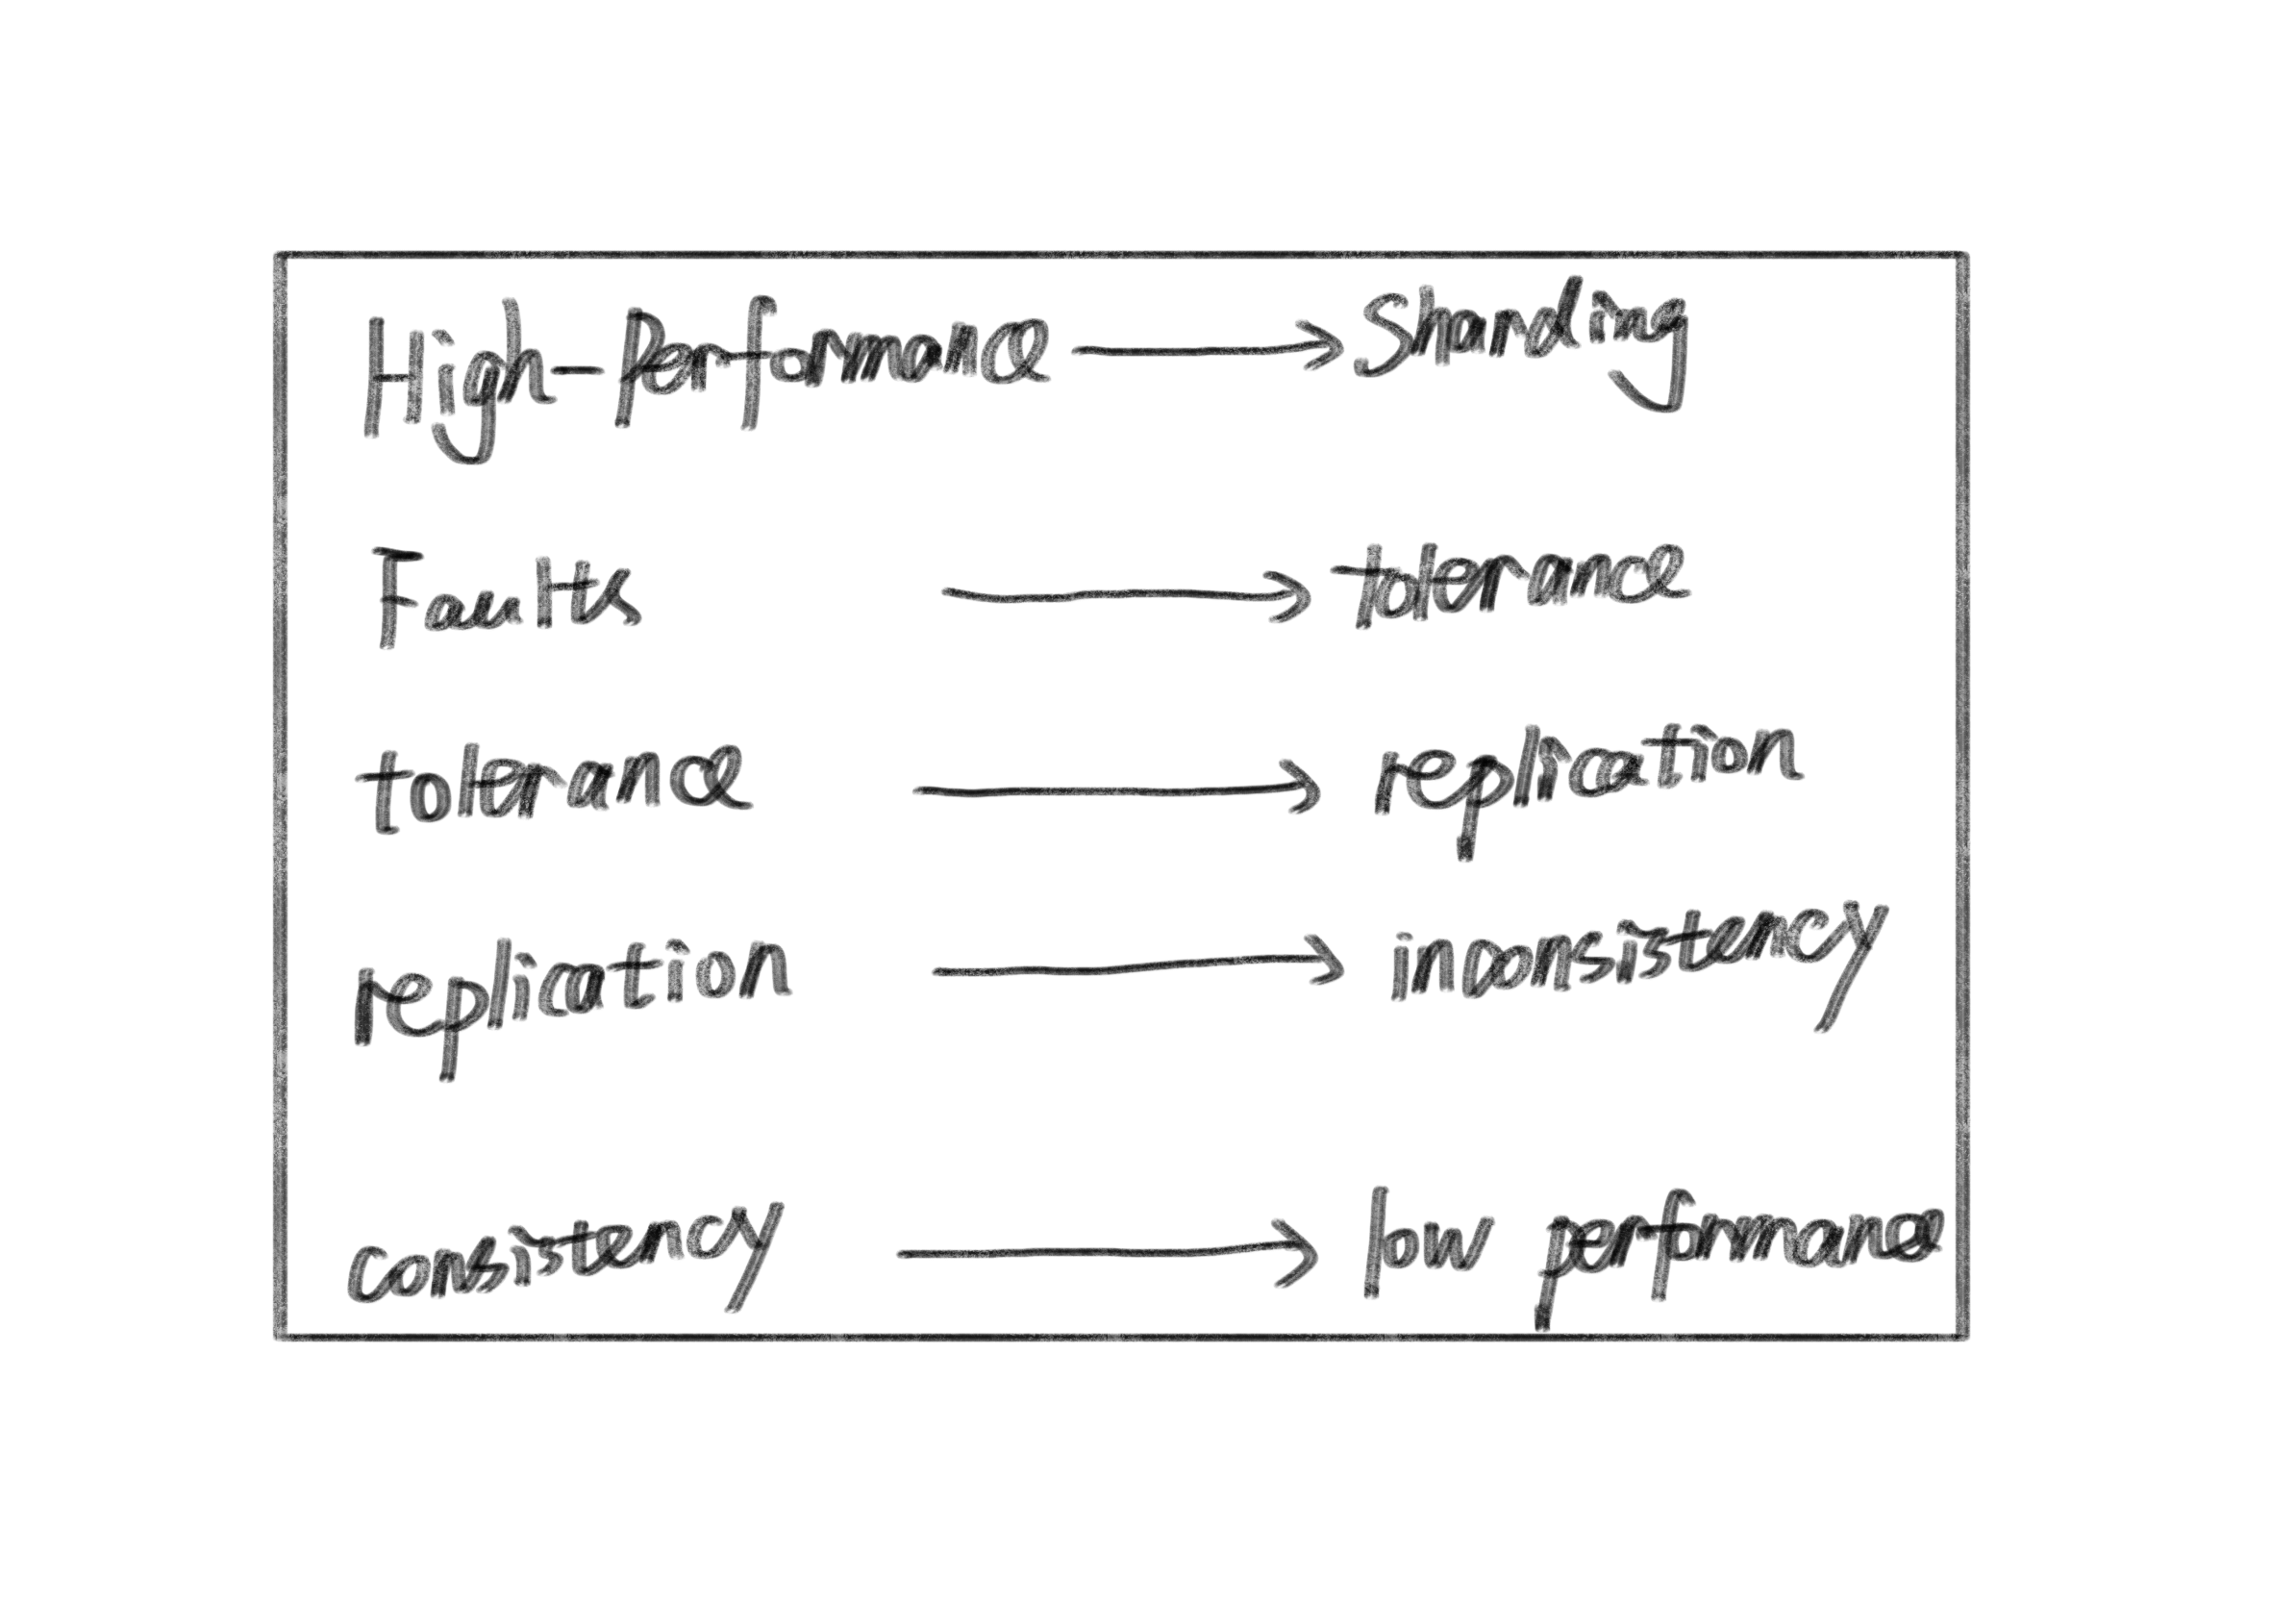 High-Performance → Sharding
Faults → tolerance
tolerance → replication
replication → inconsistency
consistency → low performance